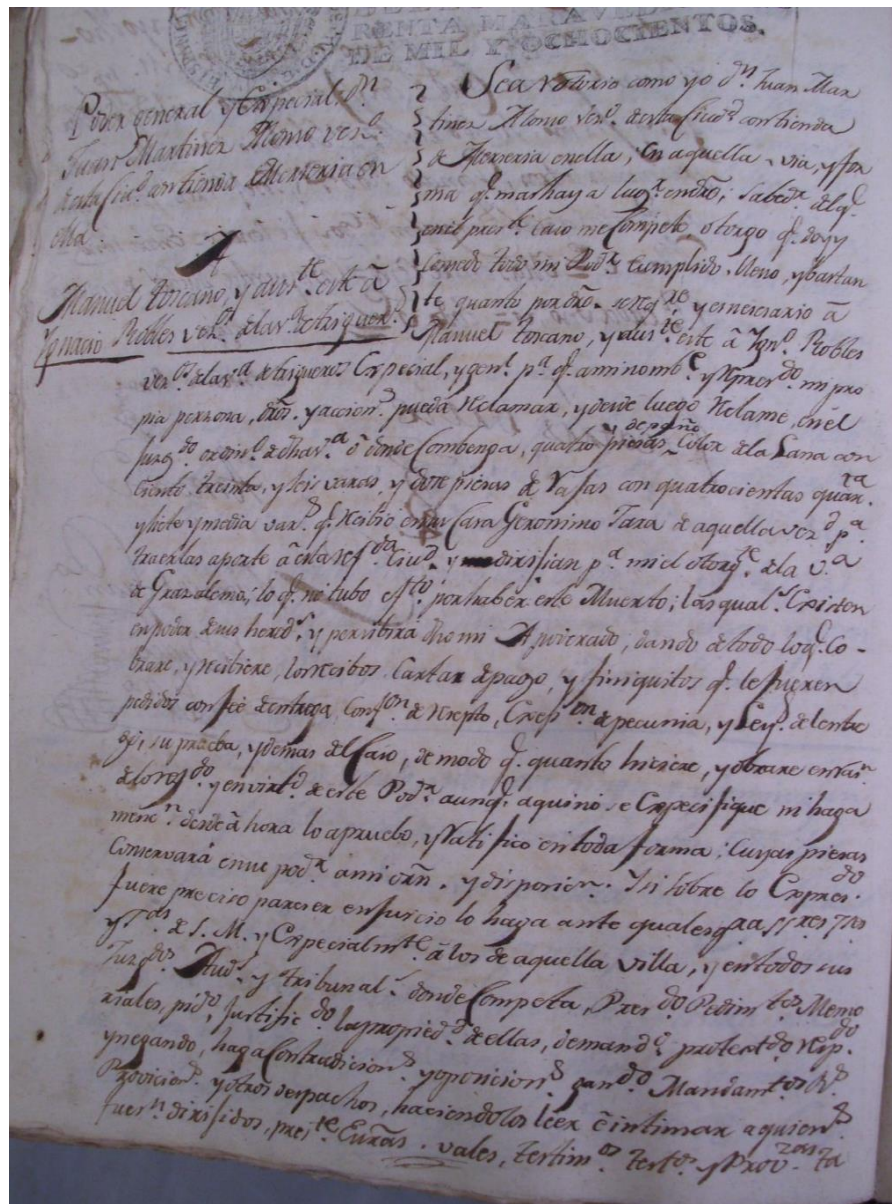 RENTA MARAVEDIS
DE MIL Y OCHOCIENTOS.
Poder general y Especial. dn
Juan Martinez Alonso vecº.
de esta Ciud. con tienda de Merseria en
ella.
A
Manuel toscano, y aurte. este â
Ygnacio Robles vezs. de la va. de trigueros.
Sea Notorio como yo dn. Juan Mar
tinez Alonso vecº. de esta Ciud. con tienda
de Merseria en ella; en aquella via, y for
ma q. mas haya lugr. en dro; Sabedr. del q.
en el preste. caso me Compete otorgo q. doy y
Comedo todo mi Podr. Cumplido. lleno, y bastan
te quanto por dro. se reqre. y es nesesario â
Manuel toscano, y aurte. este â Ygnº. Robles
vezos. de la va. de trigueros Especial, y genl. pa. q. a mi nombe. y Represdo. mi pro
pia perzona, dros. y accions. pueda Reclamar, y desde luego Reclame, en el
Juzgdo. ordinº. de dha va. ô donde Combenga, quatro piesas de paño Color de la Lana con
Ciento treinta, y seis varas, y dose piesas de Vasas con quatrocientas quarta.
y siete y media vars. q. Recibio en su Casa Geronimo Tara de aquella vezd. pa.
traerlas aporte â esta refda. Ciud. y dirijian pa. mi el otorgte. de la va.
de Grazalema; lo q. no tubo efto. por haber este Muerto; las quals. Existen
en poder de sus hereds. y persibirá dho mi Apoderado, dando de todo lo q. Co-
brare, y recibiere, los recibos. Cartas de pago, y finiquitos q. le fueren
pedidos con feé de entrega, Confon. de Resepto, Exepon. de pecunia, y Leys. de la entre
ga, su prueba, y demas del Caso, de modo q. quanto hisiere, y obrare en rasn.
de lo refdo. y en virtd. de este Podr. aunq. aqui no se Especifique ni haga
mencn. desde â hora lo apruebo, y Ratifico en toda forma; Cuyas piesas
Conservará en su podr. a mi orn. y disposicion. Y si sobre lo Expresdo.
fuere preciso pareser en juicio lo haga ante qualesqra. SSres. Jus
y Tas. de S. M. y Especialmte. â los de aquella villa, y en todos sus
Juzgdos. Auds. y tribunals. donde Competa, Presdo. Pedimtos. Memo
riales, pido. justificdo. la propiedd. de ellas, demando. protestdo. respdo.
y negando, haga Contradicions. y oposicions. gando. Mandamtos. Rs.
Provicions. y otros despachos, haciendolos leer ê intimar a quiens.
fuesn. dirijidos, preste. Escras. vales, testimos. testos. y Provzas. ta